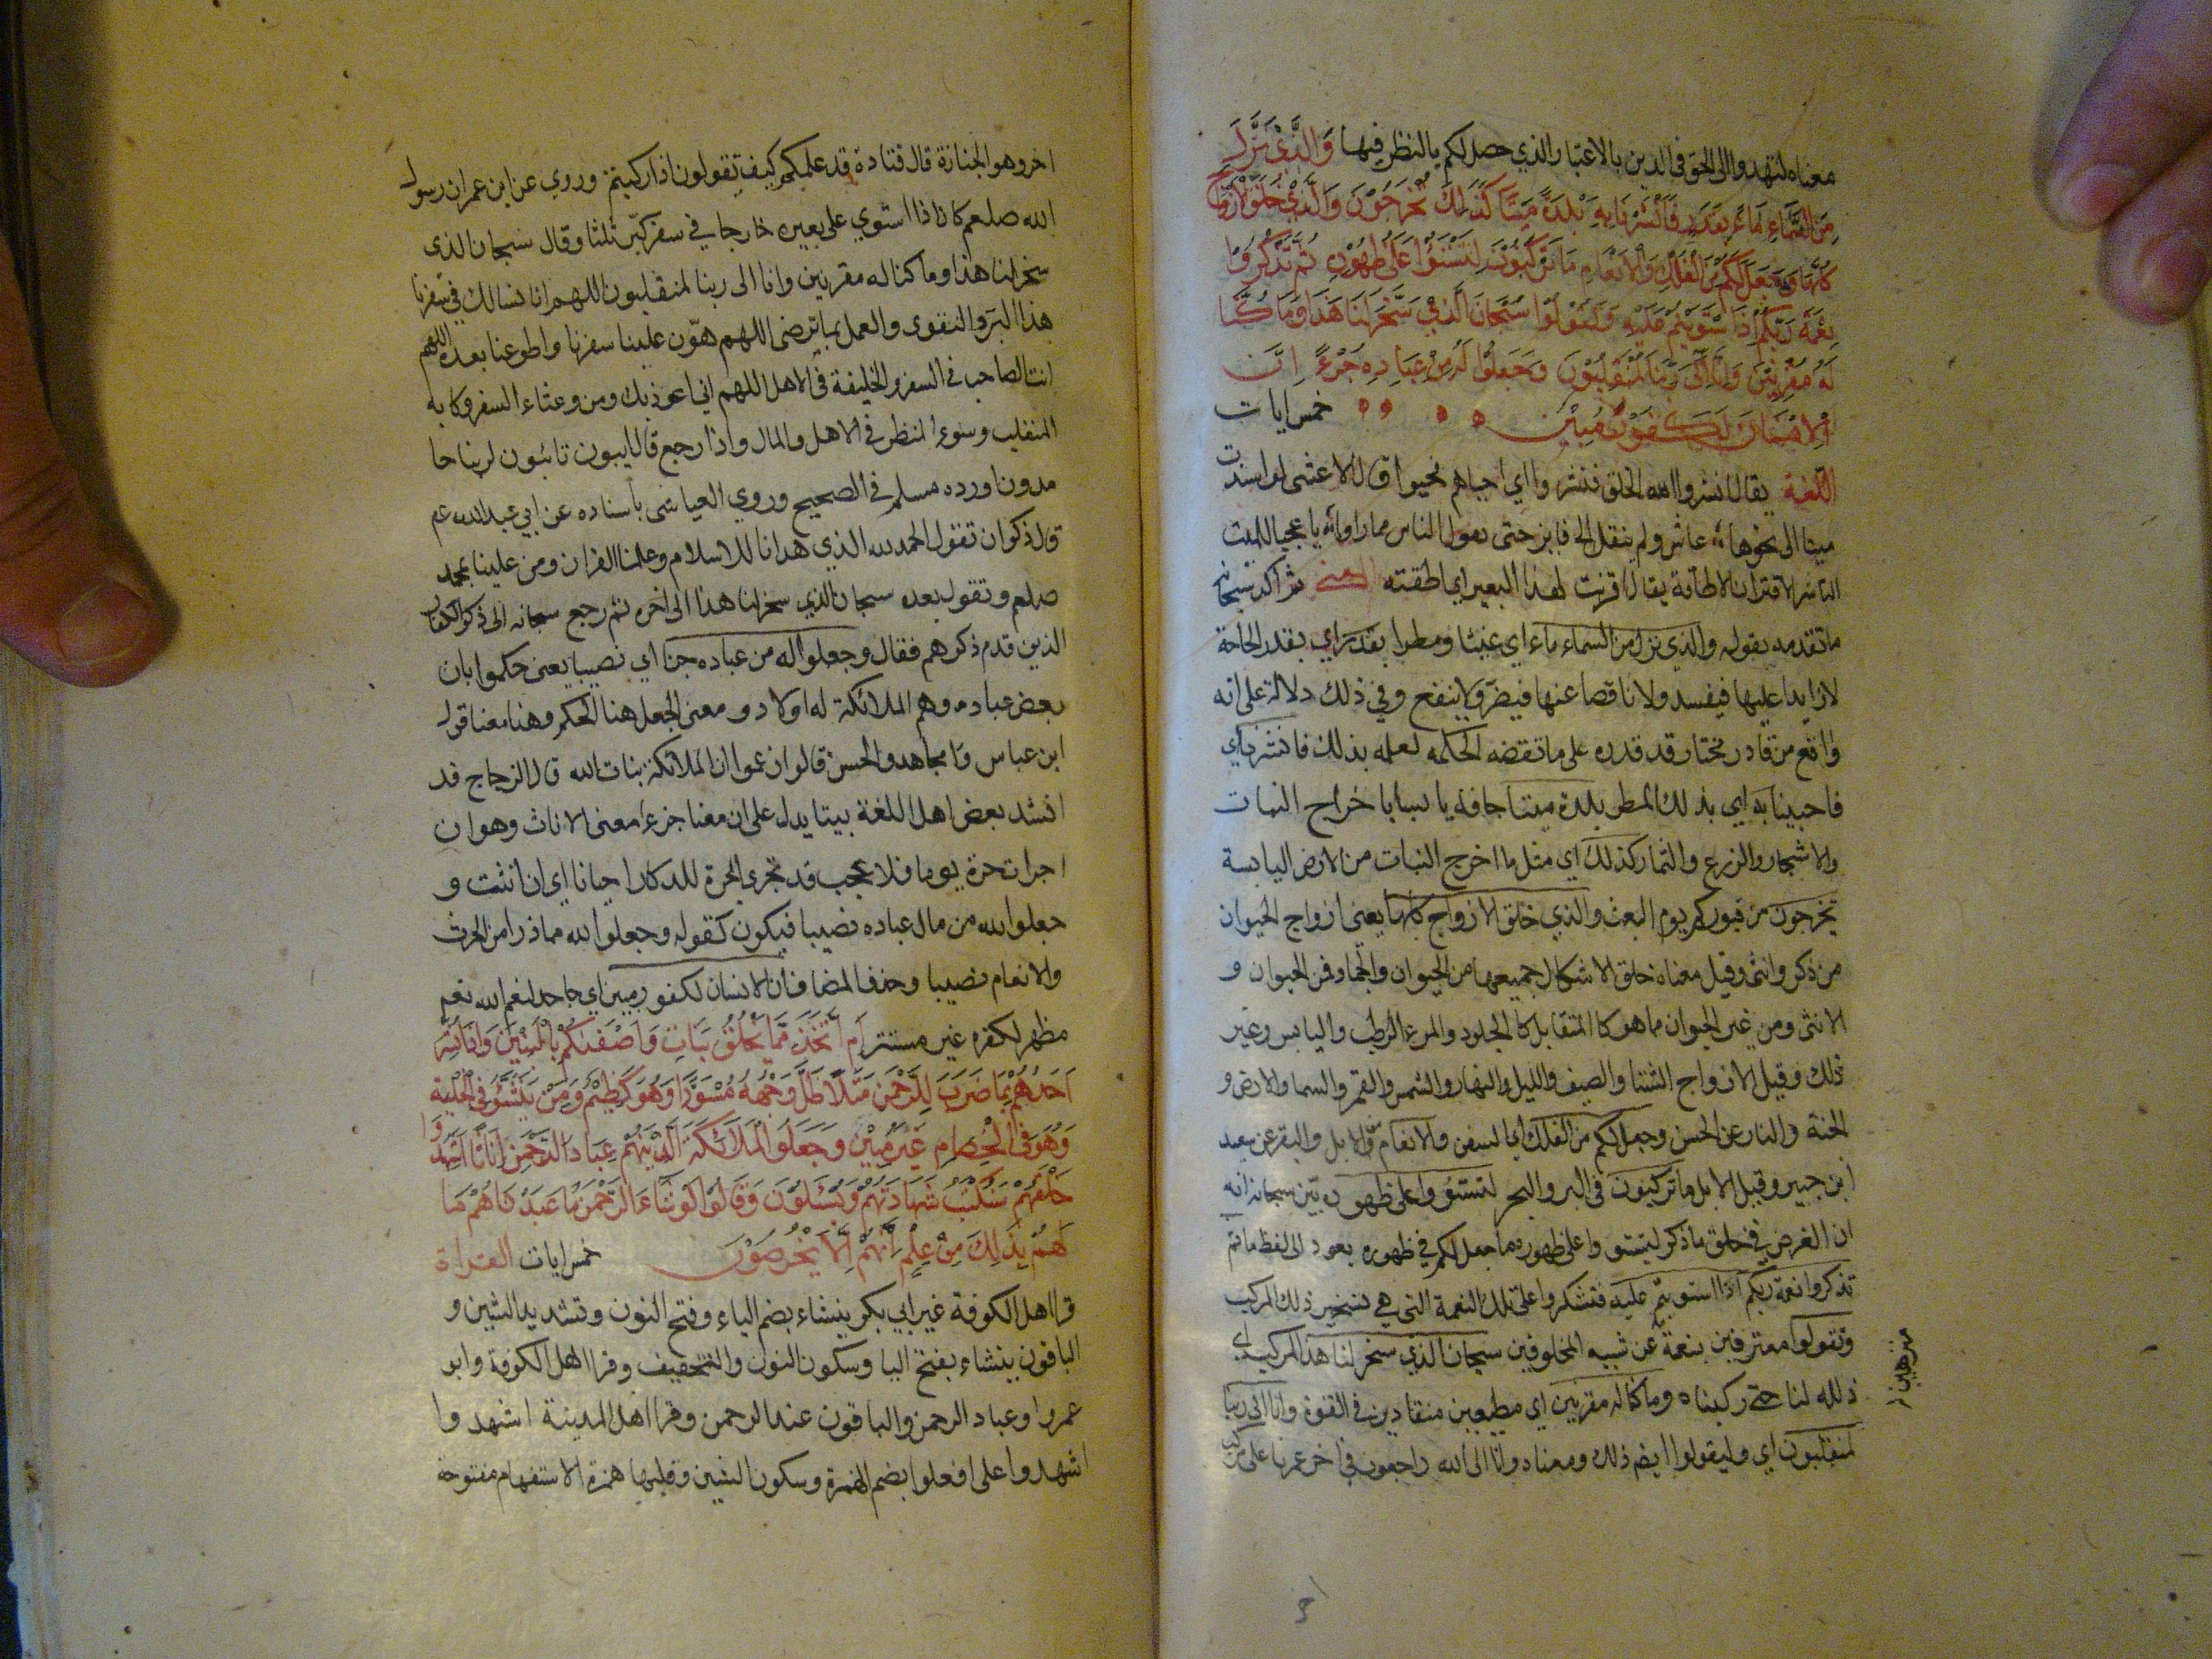 معناه لتهدوا الى الحق فى الدين بالاعتبار الذي حصل لكم بالنظر فيها وَالَّذِي نَزَّلَ
مِنَ السَّمَاءِ مَاءً بِقَدَرٍ فَأَنْشَرْنَا بِهِ بَلْدَةً مَيْتًا كَذَلِكَ تُخْرَجُوْنَ وَالَّذِيْ خَلَقَ الْأَزْوَاجَ
كُلَّهَا وَجَعَلَ لَكُمْ مِنَ الْفُلْكِ وَالْأَنْعَامِ مَا تَرْكَبُوْنَ لِتَسْتَوُا عَلَى ظُهُوْرِهِ ثُمَّ تَذْكُرُوْا
نِعْمَةَ رَبِّكُمْ إِذَا اسْتَوَيْتُمْ عَلَيْهِ وَتَقُوْلُوْا سُبْحَانَ الَّذِيْ سَخَّرَ لَنَا هَذَا وَمَا كُنَّا
لَهُ مُقْرِنِيْنَ وَإِنَّا إِلَى رَبِّنَا لَمُنْقَلِبُوْنَ وَجَعَلُوْا لَهُ مِنْ عِبَادِهِ جُزْءًا اِنَّ
الْاِنْسَانَ لَكَفُوْرٌ مُبِيْنٌ خمس ايات
اللّغة يقال انشروا الله الخلق فنشروا اي احياهم فحيوا قال الاعشى لو اسندت
ميتا الى نحوها عاش ولم ينقل الى قابر حتى يقول الناس مما راوا يا عجبا للميت
الناشر الاقتران الاطاقة يقال اقرنت لهذا البعير اي اطقته المعنى ثم اكد سبحانه
ما تقدمه بقوله والذي نزل من السماء ماء اي غيثا ومطرا بقدر اي بقدر الحاجة
لازايدا عليها فيفسد ولا ناقصا عنها فيضرّ ولا ينفع وفي ذلك دلالة على انه
واقع من قادر مختار قد قدره على ما تقتضه الحكمه لعلمه بذلك فانشرنا اي
فاحيينا به اي بذلك المطر بلدة ميتا جافة يابسا باخراج النبات
والاشجار والزرع والثمار كذلك اي مثل ما اخرج النبات من الارض اليابسة
تخرجون من قبوركم يوم البعث والذي خلق الازواج كلها يعني ازواج الحيوان
من ذكر وانثى وقيل معناه خلق الاشكال جميعها من الحيوان والجماد فمن الحيوان و
الانثى ومن غير الحيوان مما هو كالمتقابل كالحلو والمر والرطب واليابس وغير
ذلك وقيل الازواج الشتا والصيف والليل والنهار والشمس والقمر والسما والارض و
الجنة والنار عن الحسن وجعل لكم من الفلك اي السفن والانعام من الابل والبقر عن سعيد
ابن جبير وقيل الابل ما تركبون فى البر والبحر لتستوُوا على ظهوره بيّن سبحانه انه
ان الغرض في خلق ما ذكر لتستووا على ظهوره ما جعل لكم في ظهوره يعود الى لفظ ما ثم
تذكروا نعمة ربكم اذا استويتم عليه فتشكروا على تلك النعمة التي هي تسخير ذلك المركب
وتقولوا معترفين بنعمة عن شبيه المخلوقين سبحان الذي سخر لنا هذا المركب اي
ذلله لنا حتى ركبناه وما كنا له مقرنين اي مطيعين منقادين في القوة وانا الى ربنا
لمنقلبون اي وليقولوا ايضا ذلك ومعناه وانا الى الله راجعون في اخر عمرنا على مركب
اخر وهو الجنازة قال قتادة قد علمكم كيف تقولون اذا ركبتم وروي عن ابن عمر ان رسول
الله صلعم كان اذا استوي على بعيره خارجا في سفر كبّر ثلثا وقال سبحان الذى
سخر لنا هذا وما كنا له مقرنين وانا الى ربنا لمنقلبون اللهم انا نسالك في سفرنا
هذا البرّ والتقوى والعمل بما ترضى اللهم هوّن علينا سفرنا واطو عنا بعده اللهم
انت الصاحب فى السفر والخليفة في الاهل اللهم اني اعوذ بك ومن وعثاء السفر وكابة
المنقلب وسوء المنظر فى الاهل والمال واذا رجع قال ايبون تائبون لربنا حا
مدون اورده مسلم في الصحيح وروي العياشى باسناده عن ابي عبد الله عم
قال ذكر ان تقول الحمد لله الذي هدانا للاسلام وعلمنا القران ومن علينا بمحمد
صلعم وتقول بعده سبحان الذي سخر لنا هذا الى اخره ثم رجع سبحانه الى ذكر الكفار
الذين قدم ذكرهم فقال وجعلوا له من عباده جزا اي نصيبا يعنى حكموا بان
بعض عباده وهم الملائكة له اولاد ومعنى الجعل هنا الحكم وهنا معنا قول
ابن عباس ومجاهد والحسن قالوا زعموا ان الملائكة بنات الله قال الزجاج قد
انشد بعض اهل اللغة بيتا يدل على ان معنا جزءا معنى الاناث وهو ان
اجزات حرة يوما فلا عجب قد تجزي الحرة المذكارا احيانا اي ان انثت و
جعلوا لله من مال عباده نصيبا فيكون كقوله وجعلوا لله مما ذرا من الحرث
والانعام نصيبا وحذف المضاف ان الانسان لكفور مبين اي جاحد لنعم الله نعم
مظهر لكفره غير مستتر اَم اتَّخَذَ مِمَّا يَخْلُقُ بَنَاتٍ وَاَصْفَاكُمْ بِالْبَنِيْنَ وَاِذَا بُشِّرَ
اَحَدُهُمْ بِمَا ضَرَبَ لِلرَّحْمٰنِ مَثَلًا ظَلَّ وَجْهُهُ مُسْوَدًّا وَهُوَ كَظِيْمٌ وَمَنْ يُنَشَّؤُ فِي الْحِلْيَةِ
وَهُوَ فِي الْخِصَامِ غَيْرُ مُبِيْنٍ وَجَعَلُوا الْمَلَائِكَةَ الَّذِيْنَ هُمْ عِبَادُ الرَّحْمٰنِ اِنَاثًا اَشَهِدُوا
خَلْقَهُمْ سَتُكْتَبُ شَهَادَتُهُمْ وَيُسْئَلُوْنَ وَقَالُوْا لَوْ شَاءَ الرَّحْمٰنُ مَا عَبَدْنَاهُمْ مَا
لَهُمْ بِذَلِكَ مِنْ عِلْمٍ اِنْ هُمْ اِلَّا يَخْرُصُوْنَ خمس ايات القراة
قرا اهل الكوفة غير ابي بكر ينشاء بضم الياء وفتح النون وتشديد الشين و
الباقون ينشاء بفتح اليا وسكون النون والتخفيف وقرا اهل الكوفة وابو
عمروا وعباد الرحمن والباقون عند الرحمن وقرا اهل المدينة اشهدوا
اشهدوا على افعلوا بضم الهمزة وسكون الشين وقبلها همزة الاستفهام مفتوحة